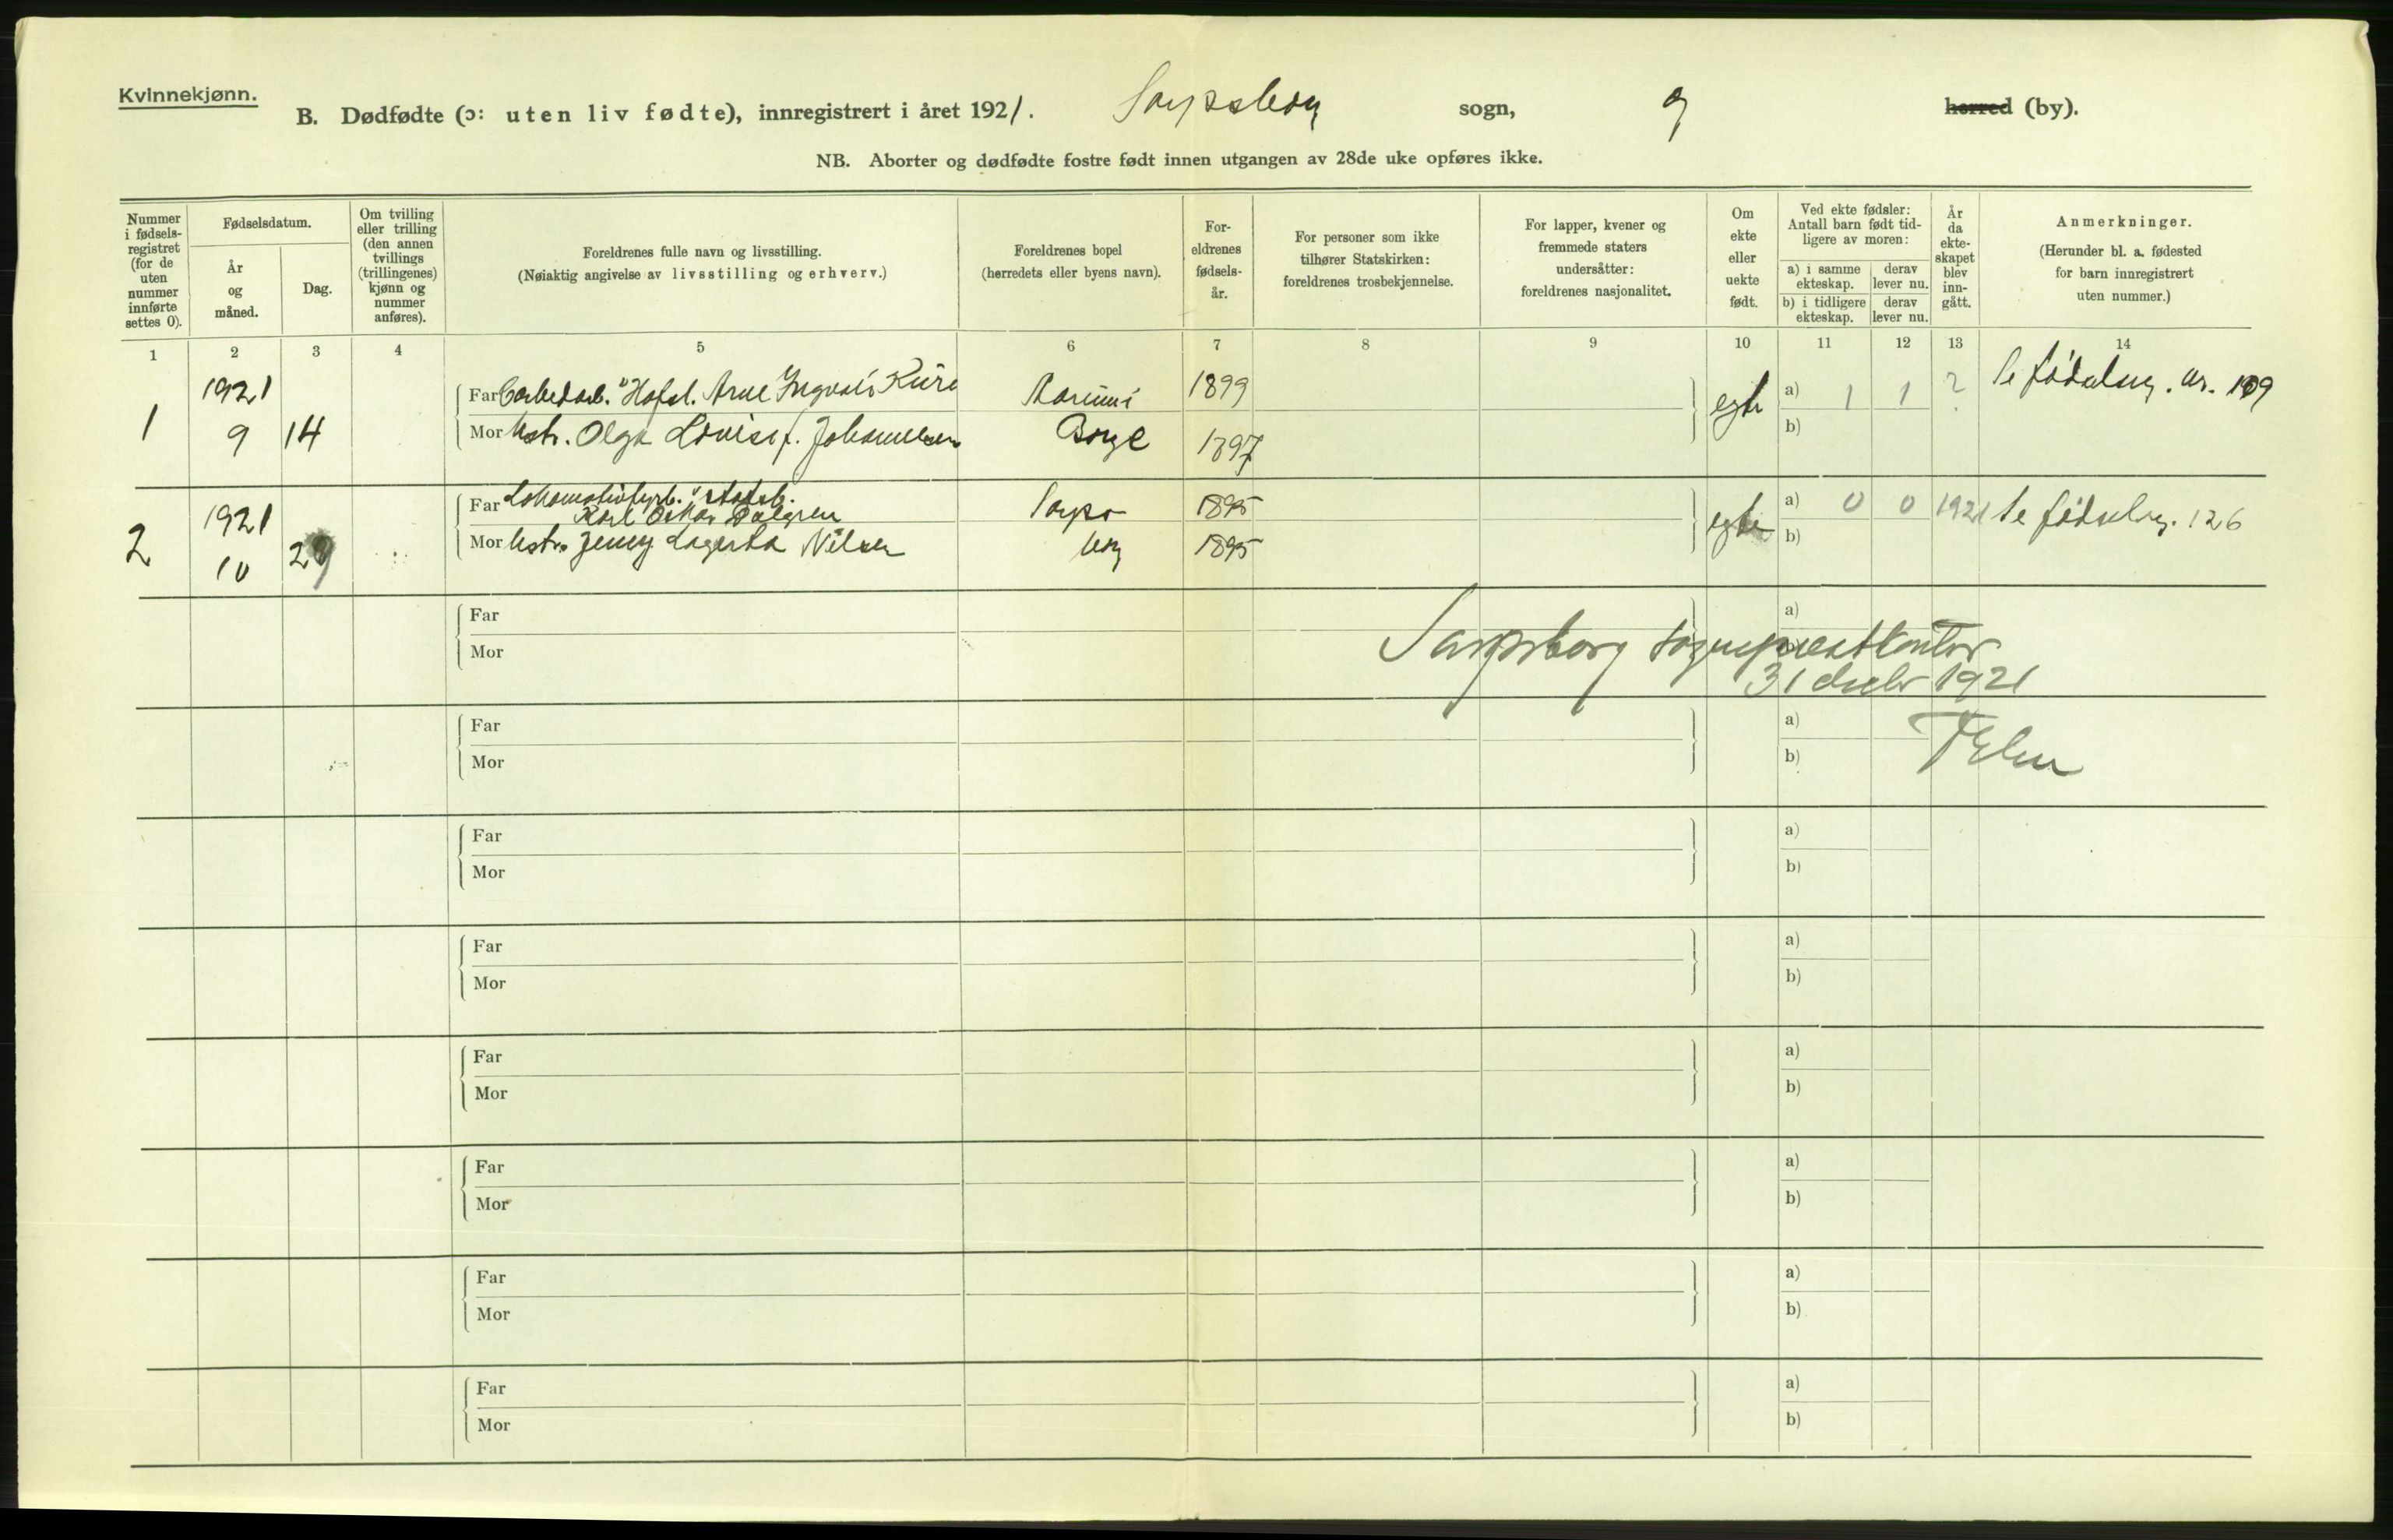 Kvinnekjønn.
B. Dødfødte (ɔ: uten liv fødte), innregistrert i året 1921. Sarpsborg sogn, herred (by).
NB. Aborter og dødfødte fostre født innen utgangen av 28de uke opføres ikke.
Nummer i fødsels-registret (for de uten nummer innførte settes 0).
Fødselsdatum.
År og måned.
Dag.
Om tvilling eller trilling (den annen tvillings (trillingenes) kjønn og nummer anføres).
Foreldrenes fulle navn og livsstilling.
(Nøiaktig angivelse av livsstilling og erhverv.)
Foreldrenes bopel
(herredets eller byens navn).
For-eldrenes fødsels-år.
For personer som ikke tilhører Statskirken: foreldrenes trosbekjennelse.
For lapper, kvener og fremmede staters undersåtter: foreldrenes nasjonalitet.
Om ekte eller uekte født.
Ved ekte fødsler: Antall barn født tid-ligere av moren:
a) i samme ekteskap.
derav lever nu.
b) i tidligere ekteskap.
derav lever nu.
År da ekte-skapet blev inn-gått.
Anmerkninger.
(Herunder bl. a. fødested for barn innregistrert uten nummer.)
1 2 3 4 5 6 7 8 9 10 11 12 13 14
1 1921 9 14
Far Hafsl. Arne Ingvald 1899
Mor Hstr. Olga Lovise f. Johannesen Borge 1897
egte a) 1 1 ? Se fødselsreg. nr. 109
b)
2 1921 10 29
Far Lokomotivfyrb. v/ statsb.
Karl Oskar Dalgren Sarps 1895
Mor Hstr. Jenny Lagerta Nilsen borg 1895
egte a) 0 0 1921 Se fødselsreg. 126
b)
Far a)
Mor
Sarpsborg sogneprestkontor
31 desbr 1921
Far a)
Mor b)
Far a)
Mor b)
Far a)
Mor b)
Far a)
Mor b)
Far a)
Mor b)
Far a)
Mor b)
Far a)
Mor b)